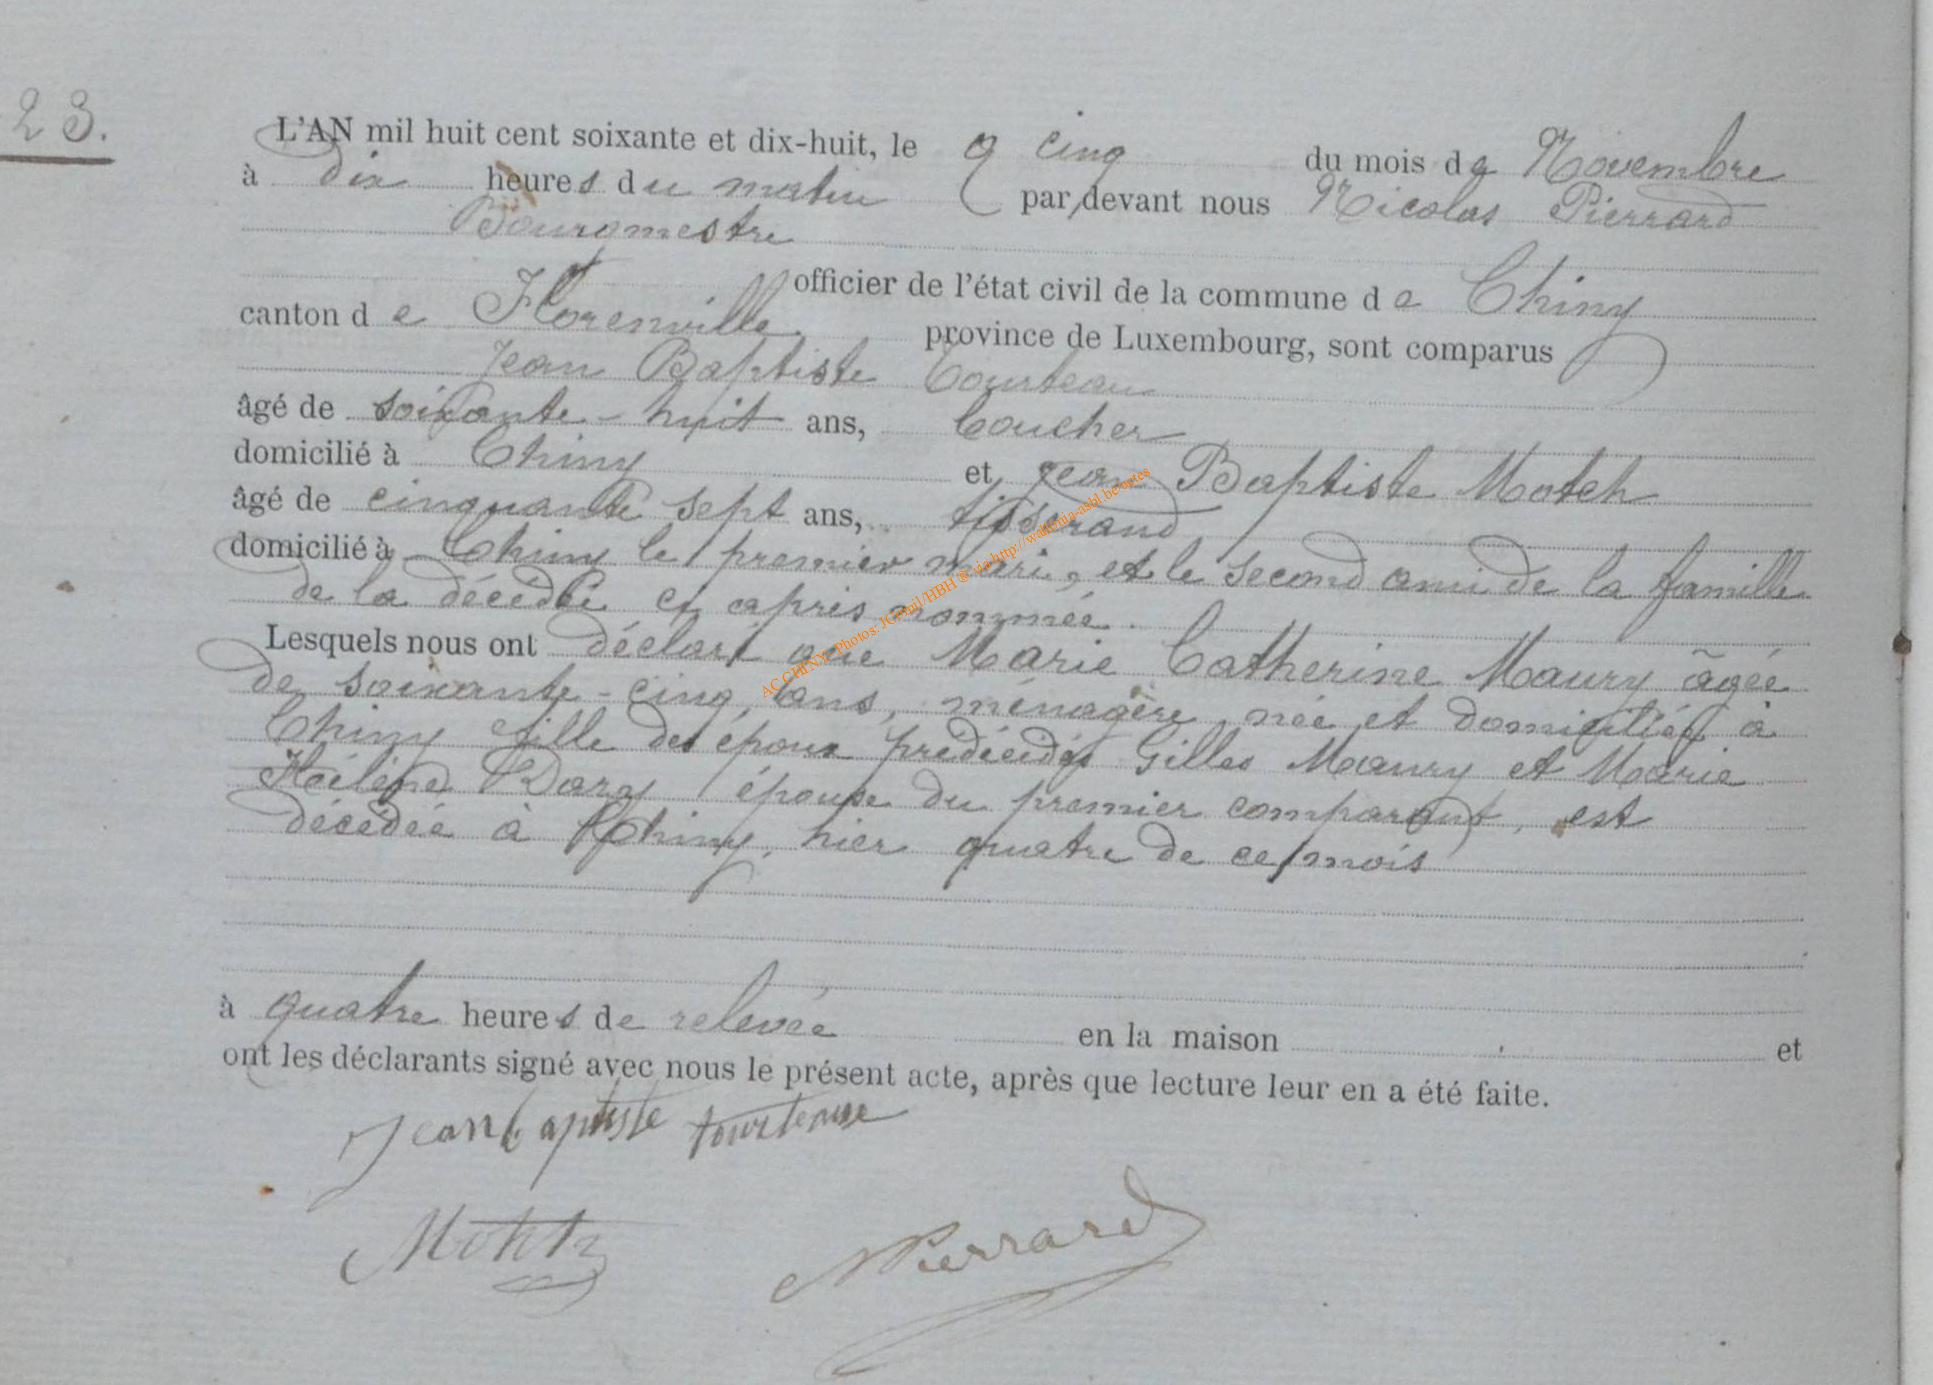 23.
L'AN mil huit cent soixante et dix-huit, le cinq du mois de Novembre
à dix heures du matin par devant nous Nicolas Pierrard
Bourgmestre
officier de l'état civil de la commune de Chiny
canton de Florenville province de Luxembourg, sont comparus
Jean Baptiste Tourteau
âgé de soixante-huit ans, Coucher
domicilié à Chiny et Jean Baptiste Motch
âgé de cinquante sept ans, tisserand
domicilié à Chiny le premier mari, et le second ami de la famille
de la décédée ci après nommée.
Lesquels nous ont déclaré que Marie Catherine Maury âgée
de soixante-cinq ans, ménagère née et domiciliée à
Chiny fille des époux prédécédés Gilles Maury et Marie
Hélène Dary épouse du premier comparant, est
décédée à Chiny, hier quatre de ce mois
à quatre heures de relevée en la maison et
ont les déclarants signé avec nous le présent acte, après que lecture leur en a été faite.
Jean baptiste tourteaux
NPierrard
AC CHINY - Photos: JGomil/HBH @ via http://wallonia-asbl.be actes